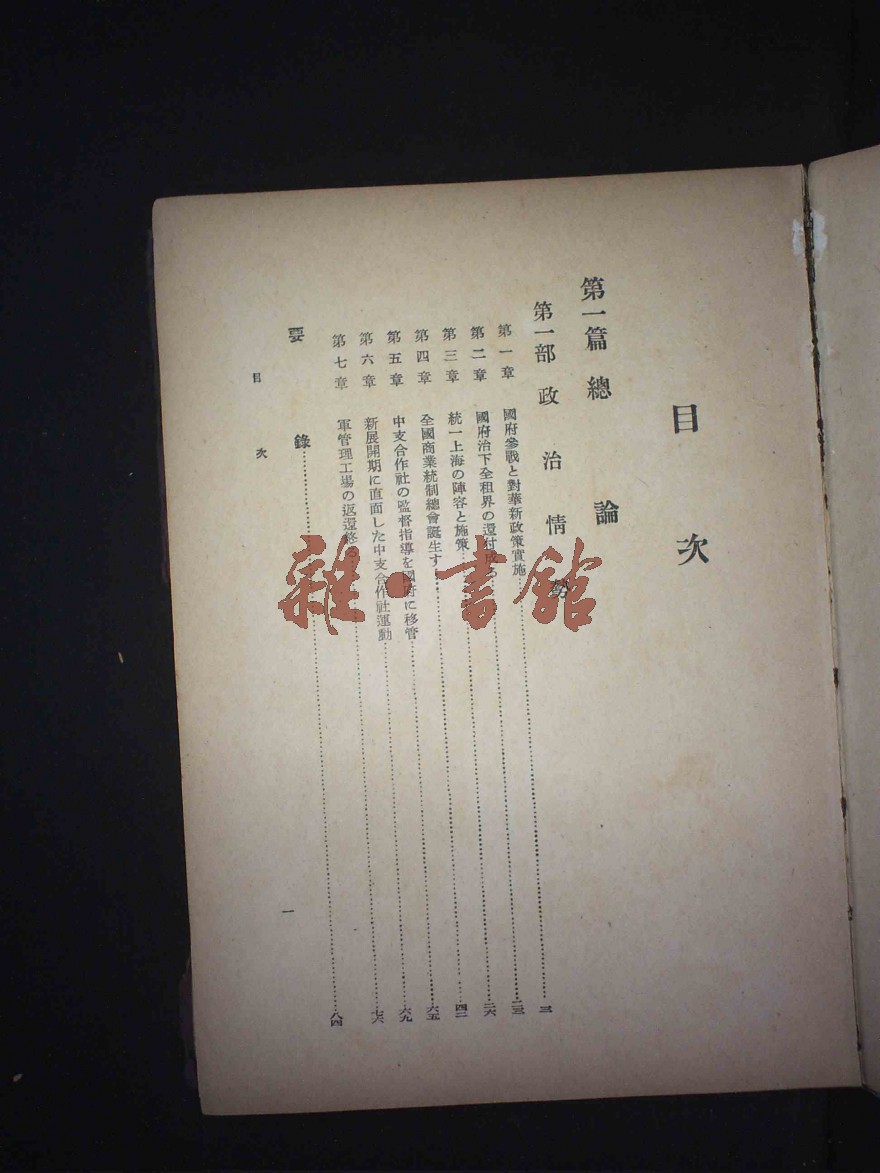 目次
第一篇 總論
第一部 政治情勢
第一章 國府參戰と對華新政策實施……三
第二章 國府治下全租界の還付成る……二三
第三章 統一上海の陣容と施策……二六
第四章 全國商業統制總會誕生す……四二
第五章 中支合作社の監督指導を國府に移管……六五
第六章 新展開期に直面した中支合作社運動……六九
第七章 軍管理工場の返還終る……七六
要錄……八四
目次 一
雜·書館